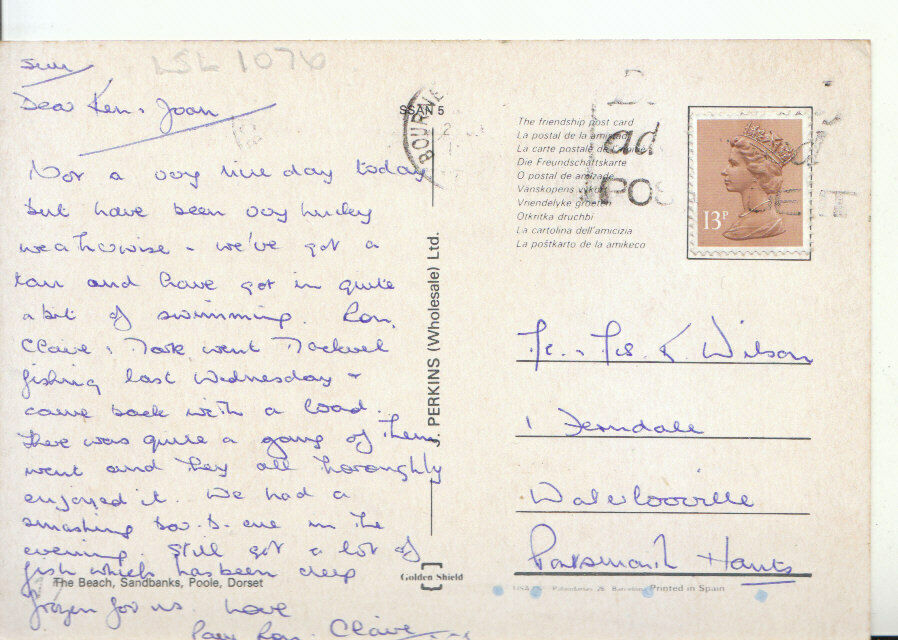 LSL 1076
Sun
Dear Ken & Joan
Not a very nice day today
but have been very lucky
weatherwise - we've got a
tan and have got in quite
a bit of swimming. Ron,
Claire & Mark went Mackrel
fishing last Wednesday &
came back with a load.
There was quite a gang of them
went and they all thoroughly
enjoyed it. We had a
smashing bar-b-cue in the
evening. Still got a lot of
fish which has been deep
frozen for us. Love
Ron. Claire
The Beach, Sandbanks, Poole, Dorset
SSAN 5
J. PERKINS (Wholesale) Ltd.
Golden Shield
BOURNE
The friendship post card
La postal de la amistad
La carte postale de l'amitié
Die Freundschaftskarte
O postal de amizade
Vänskapens vykort
Vriendelyke groeten
Otkritka druchbi
La cartolina dell'amicizia
La poŝtkarto de la amikeco
ad
POS
13P
Mr. & Mrs K. Wilson
1 Ferndale
Waterlooville
Portsmouth Hants
Printed in Spain